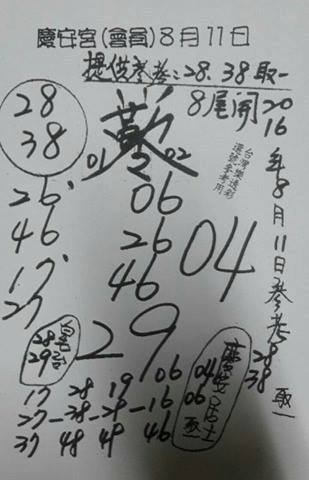 慶安宮(會員)8月11日
提供參考:28.38取一
8尾開
2016年8月11日參考
28
38
取一
28
38
01 02
台灣樂透彩
選號參考用
06
26
46
04
26
46
17
27
29
28
29
06
04
06
取一
居士
17 28 19 06
27-38-29-16
37 48 49 46